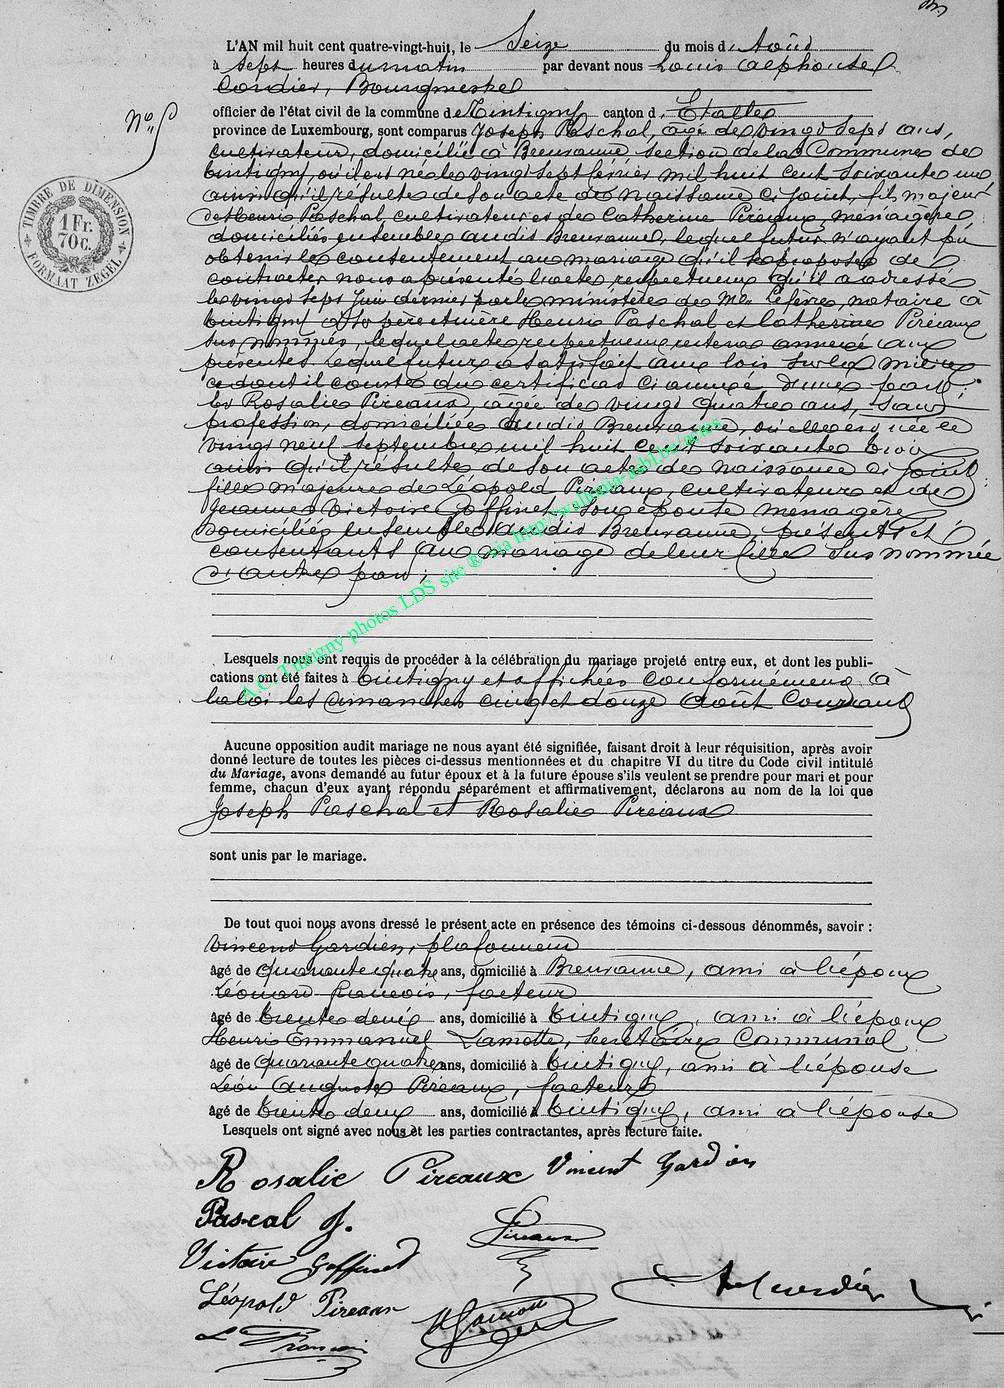 L'AN mil huit cent quatre-vingt-huit, le Seize du mois d'Août
à sept heures du matin par devant nous Louis Alphonse
Cordier, Bourgmestre
officier de l'état civil de la commune de Tintigny canton d'Etalle
province de Luxembourg, sont comparus Joseph Paschal, agé de vingt sept ans,
N° 5
TIMBRE DE DIMENSION
1 Fr.
70 c.
FORMAAT ZEGEL
cultivateur, domicilié à Breuvanne, section de la Commune de
Tintigny, où il est né le vingt sept février mil huit cent soixante un
ainsi qu'il résulte de son acte de naissance ci joint, fils majeur
de Henri Paschal, cultivateur et de Catherine Pireaux, ménagère
domiciliés ensemble audit Breuvanne, lequel futur n'ayant pu
obtenir le consentement au mariage qu'il se propose de
contracter nous a présenté l'acte respectueux qu'il a adressé
le vingt sept Juin dernier par le ministère de Me Lefèvre, notaire à
Tintigny à ses père et mère Henri Paschal et Catherine Pireaux
sus nommés, lequel acte respectueux restera annexé aux
présentes lequel futur a satisfait aux lois sur la milice
ce dont il conste du certificat ci annexé d'une part;
et Rosalie Pireaux, agée de vingt quatre ans, sans
profession, domiciliée audit Breuvanne, où elle est née le
vingt neuf septembre mil huit cent soixante trois
ainsi qu'il résulte de son acte de naissance ci joint
fille majeure de Léopold Pireaux, cultivateur et de
Jeanne Victoire Goffinet, son épouse ménagère
domiciliés ensemble audit Breuvanne, présents et
consentants au mariage de leur fille sus nommée
d'autre part;
A.C. Tintigny photos LDS site ® via http://wallonia-asbl.be/actes
Lesquels nous ont requis de procéder à la célébration du mariage projeté entre eux, et dont les publi-
cations ont été faites à Tintigny et affichées conformément à
la loi les dimanches cinq et douze août courant
Aucune opposition audit mariage ne nous ayant été signifiée, faisant droit à leur réquisition, après avoir
donné lecture de toutes les pièces ci-dessus mentionnées et du chapitre VI du titre du Code civil intitulé
du Mariage, avons demandé au futur époux et à la future épouse s'ils veulent se prendre pour mari et pour
femme, chacun d'eux ayant répondu séparément et affirmativement, déclarons au nom de la loi que
Joseph Paschal et Rosalie Pireaux
sont unis par le mariage.
De tout quoi nous avons dressé le présent acte en présence des témoins ci-dessous dénommés, savoir :
Vincent Gardien, plafonneur
âgé de quarante quatre ans, domicilié à Breuvanne, ami à l'époux
Léonard François, facteur
âgé de trente deux ans, domicilié à Tintigny, ami à l'époux
Henri Emmanuel Lamotte, Secrétaire Communal
âgé de quarante quatre ans, domicilié à Tintigny, ami à l'épouse
Léon Auguste Pireaux, facteur
âgé de trente deux ans, domicilié à Tintigny, ami à l'épouse
Lesquels ont signé avec nous et les parties contractantes, après lecture faite.
Rosalie Pireaux Vincent Gardien
Pascal J.
Pireaux
Victoire Goffinet
Léopold Pireaux
L François